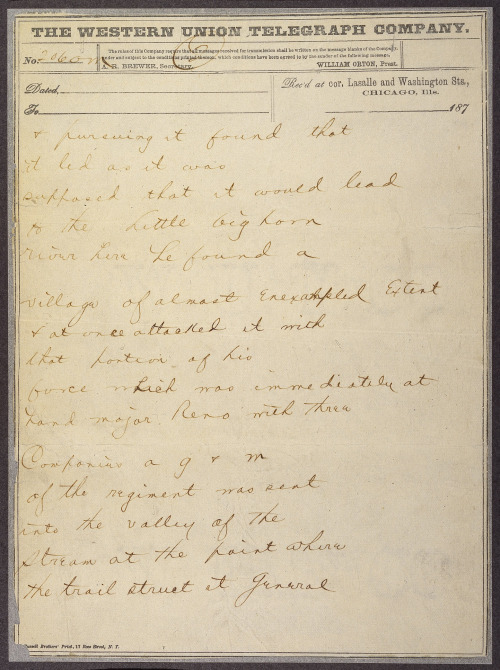 THE WESTERN UNION TELEGRAPH COMPANY.
The rules of this Company require that all messages received for transmission shall be written on the message blanks of the Company,
under and subject to the conditions printed thereon, which conditions have been agreed to by the sender of the following message.
A. R. BREWER, Secretary.
WILLIAM ORTON, Prest.
No.
Dated
Rec'd at cor. Lasalle and Washington Sts.,
CHICAGO, Ills.
To
187
& pursuing it found that
it led as it was
supposed that it would lead
to the Little big horn
river here he found a
village of almost Enexampled Extent
& at once attacked it with
that portion of his
force which was immediately at
hand major Reno with three
Companies a g & m
of the regiment was sent
into the valley of the
stream at the point where
the trail struct it General
Russell Brothers' Print, 17 Rose Street, N. Y.